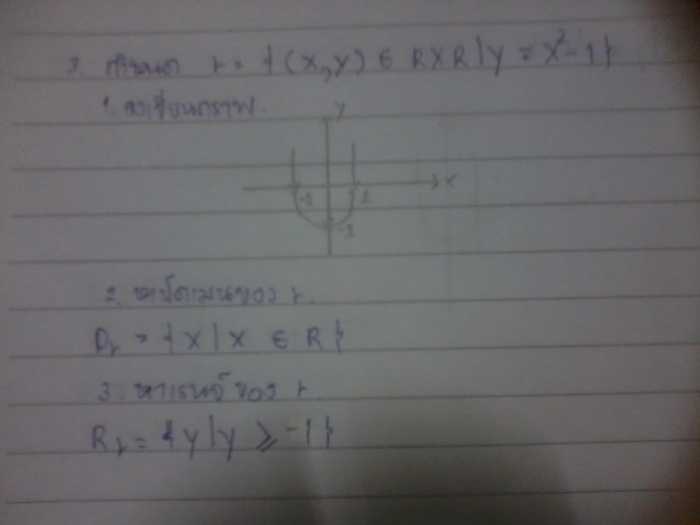 3. กำหนด r = {(x,y) ∈ R×R | y = x²-1}
1. จงเขียนกราฟ.
y
x
-1 1
-1
2. หาโดเมนของ r.
Dr = {x | x ∈ R}
3. หาเรนจ์ของ r
Rr = {y | y ≥ -1}